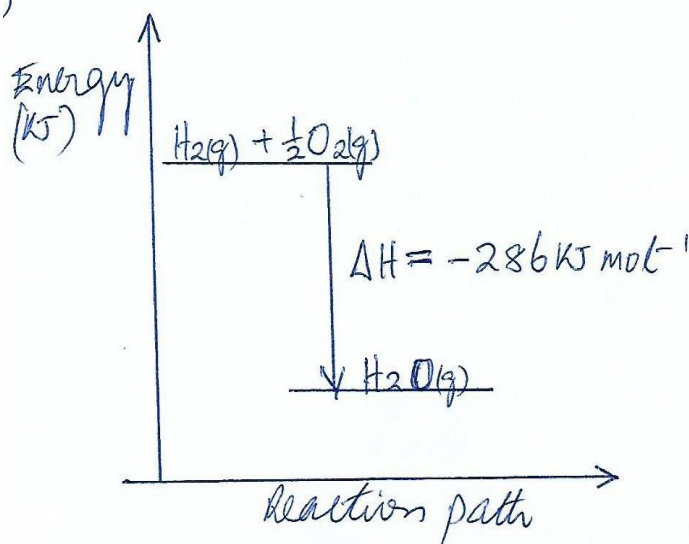 )
Energy
(KJ)
H₂(g) + ½O₂(g)
ΔH = -286 KJ mol⁻¹
H₂O(g)
Reaction path